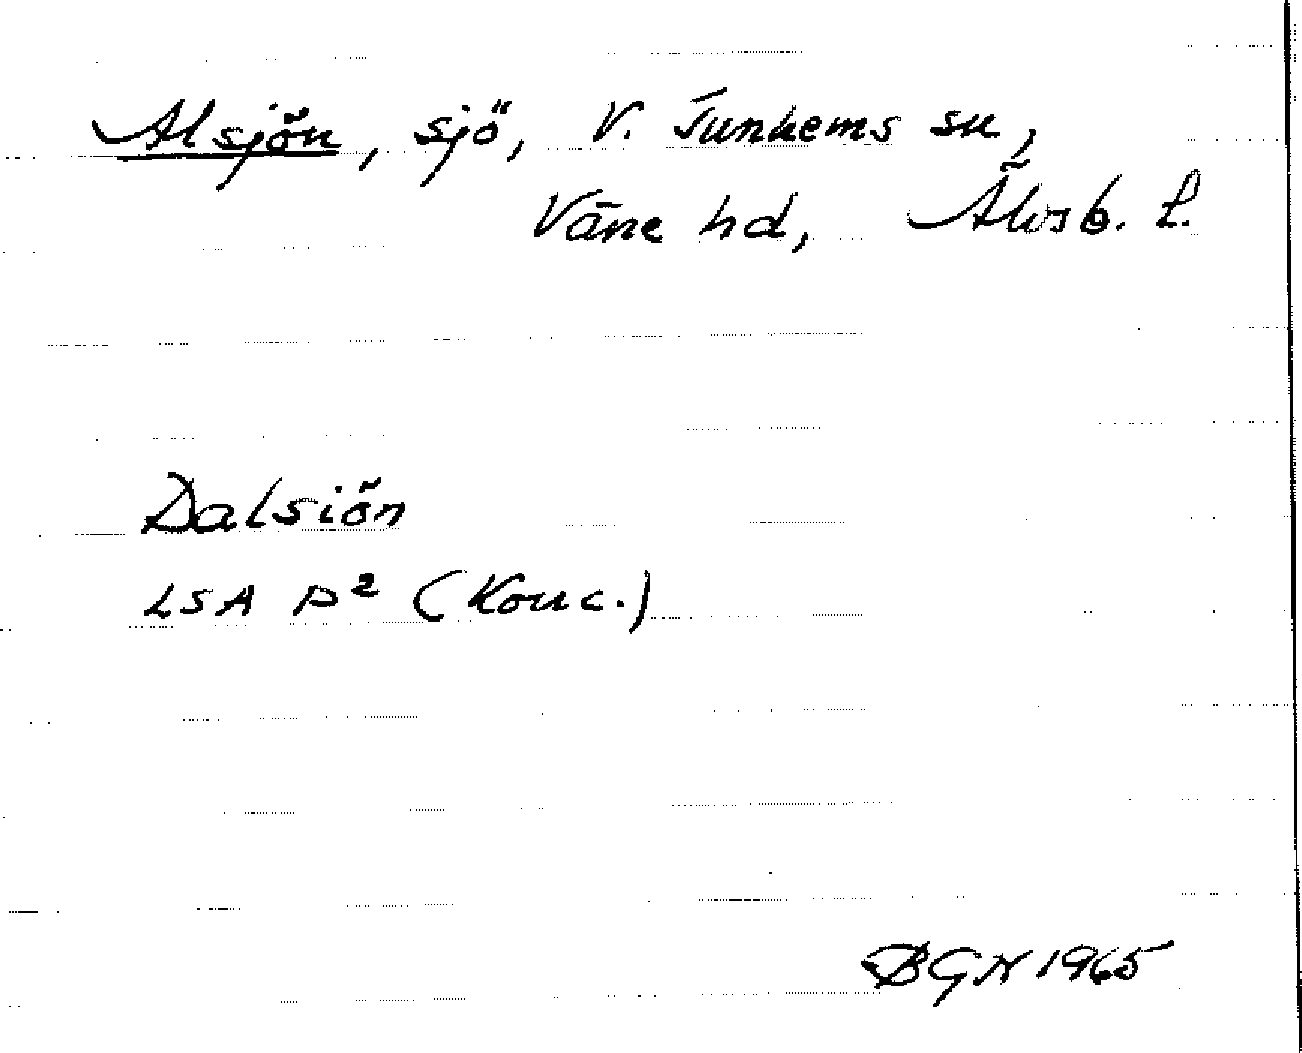 Alsjön, sjö, V. Tunhems sn,
Väne hd, Älvsb. l.
Dalsiön
LSA P² (Konc.)
BGN 1965